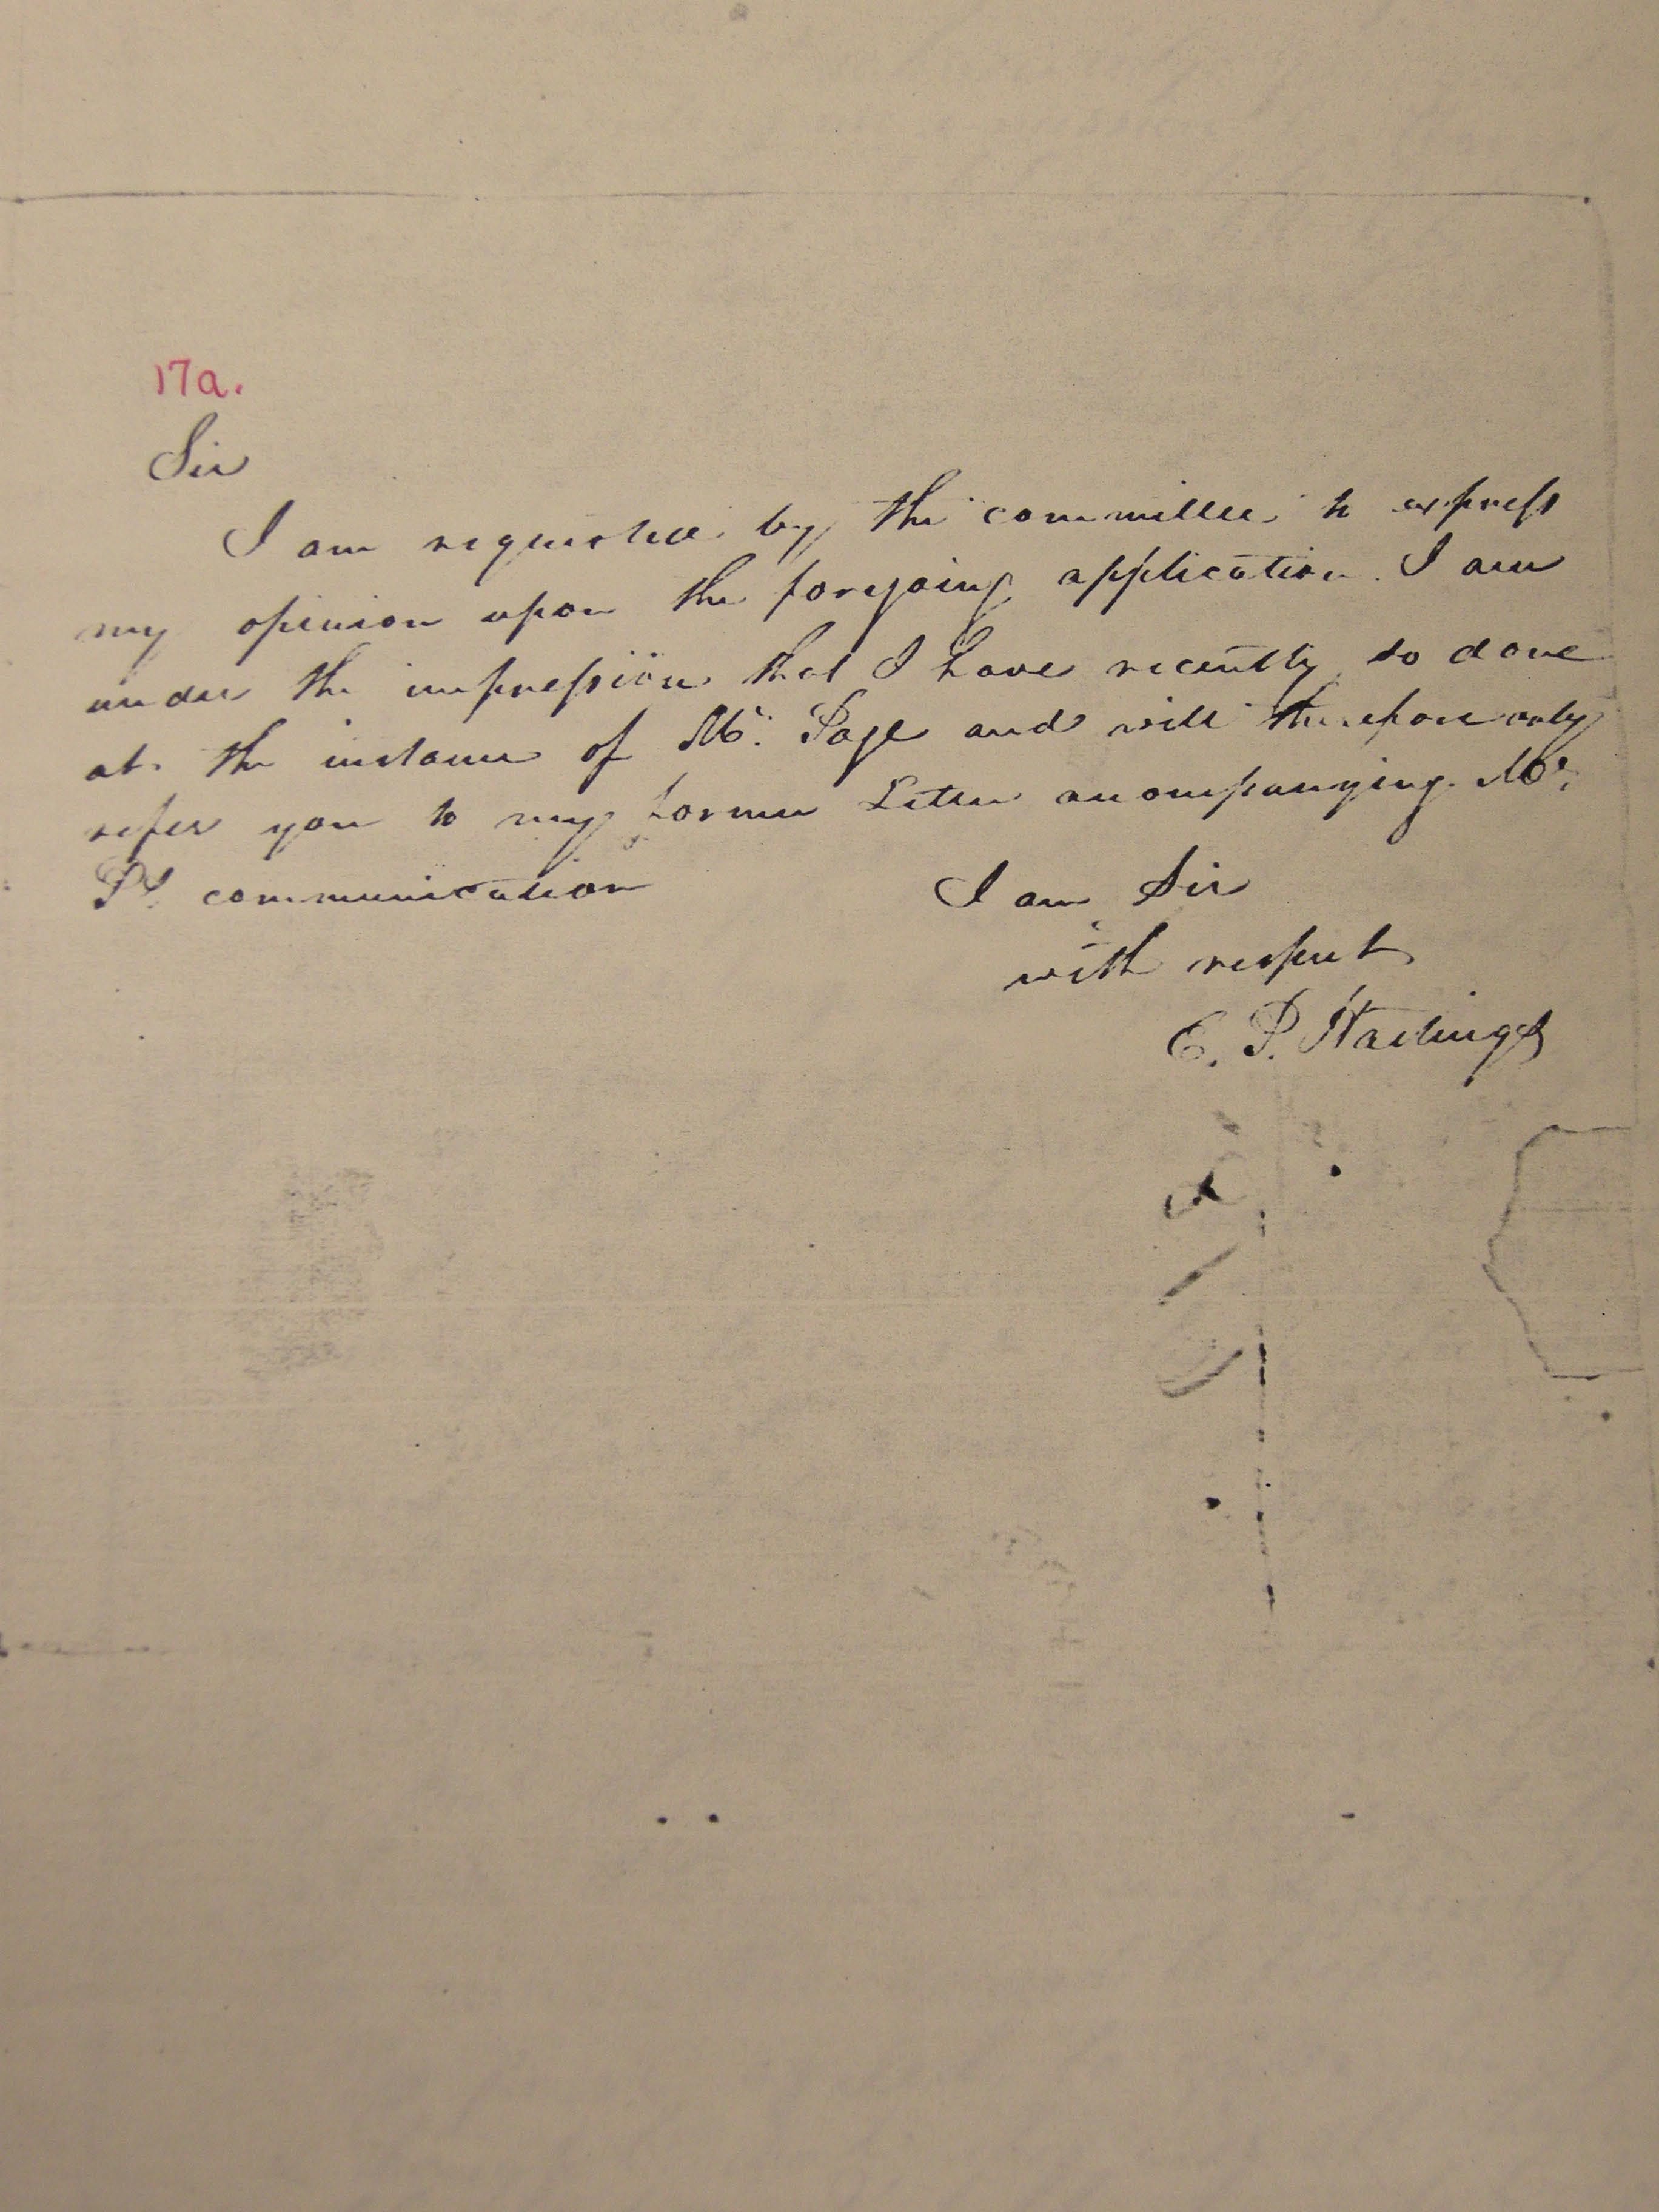 17a.
Sir
I am requested by the committee to express
my opinion upon the foregoing application. I am
under the impression that I have recently so done
at the instance of Mr. Page and will therefore only
refer you to my former Letter accompanying Mr.
P's. communication
I am Sir
with respect
E. P. Hastings